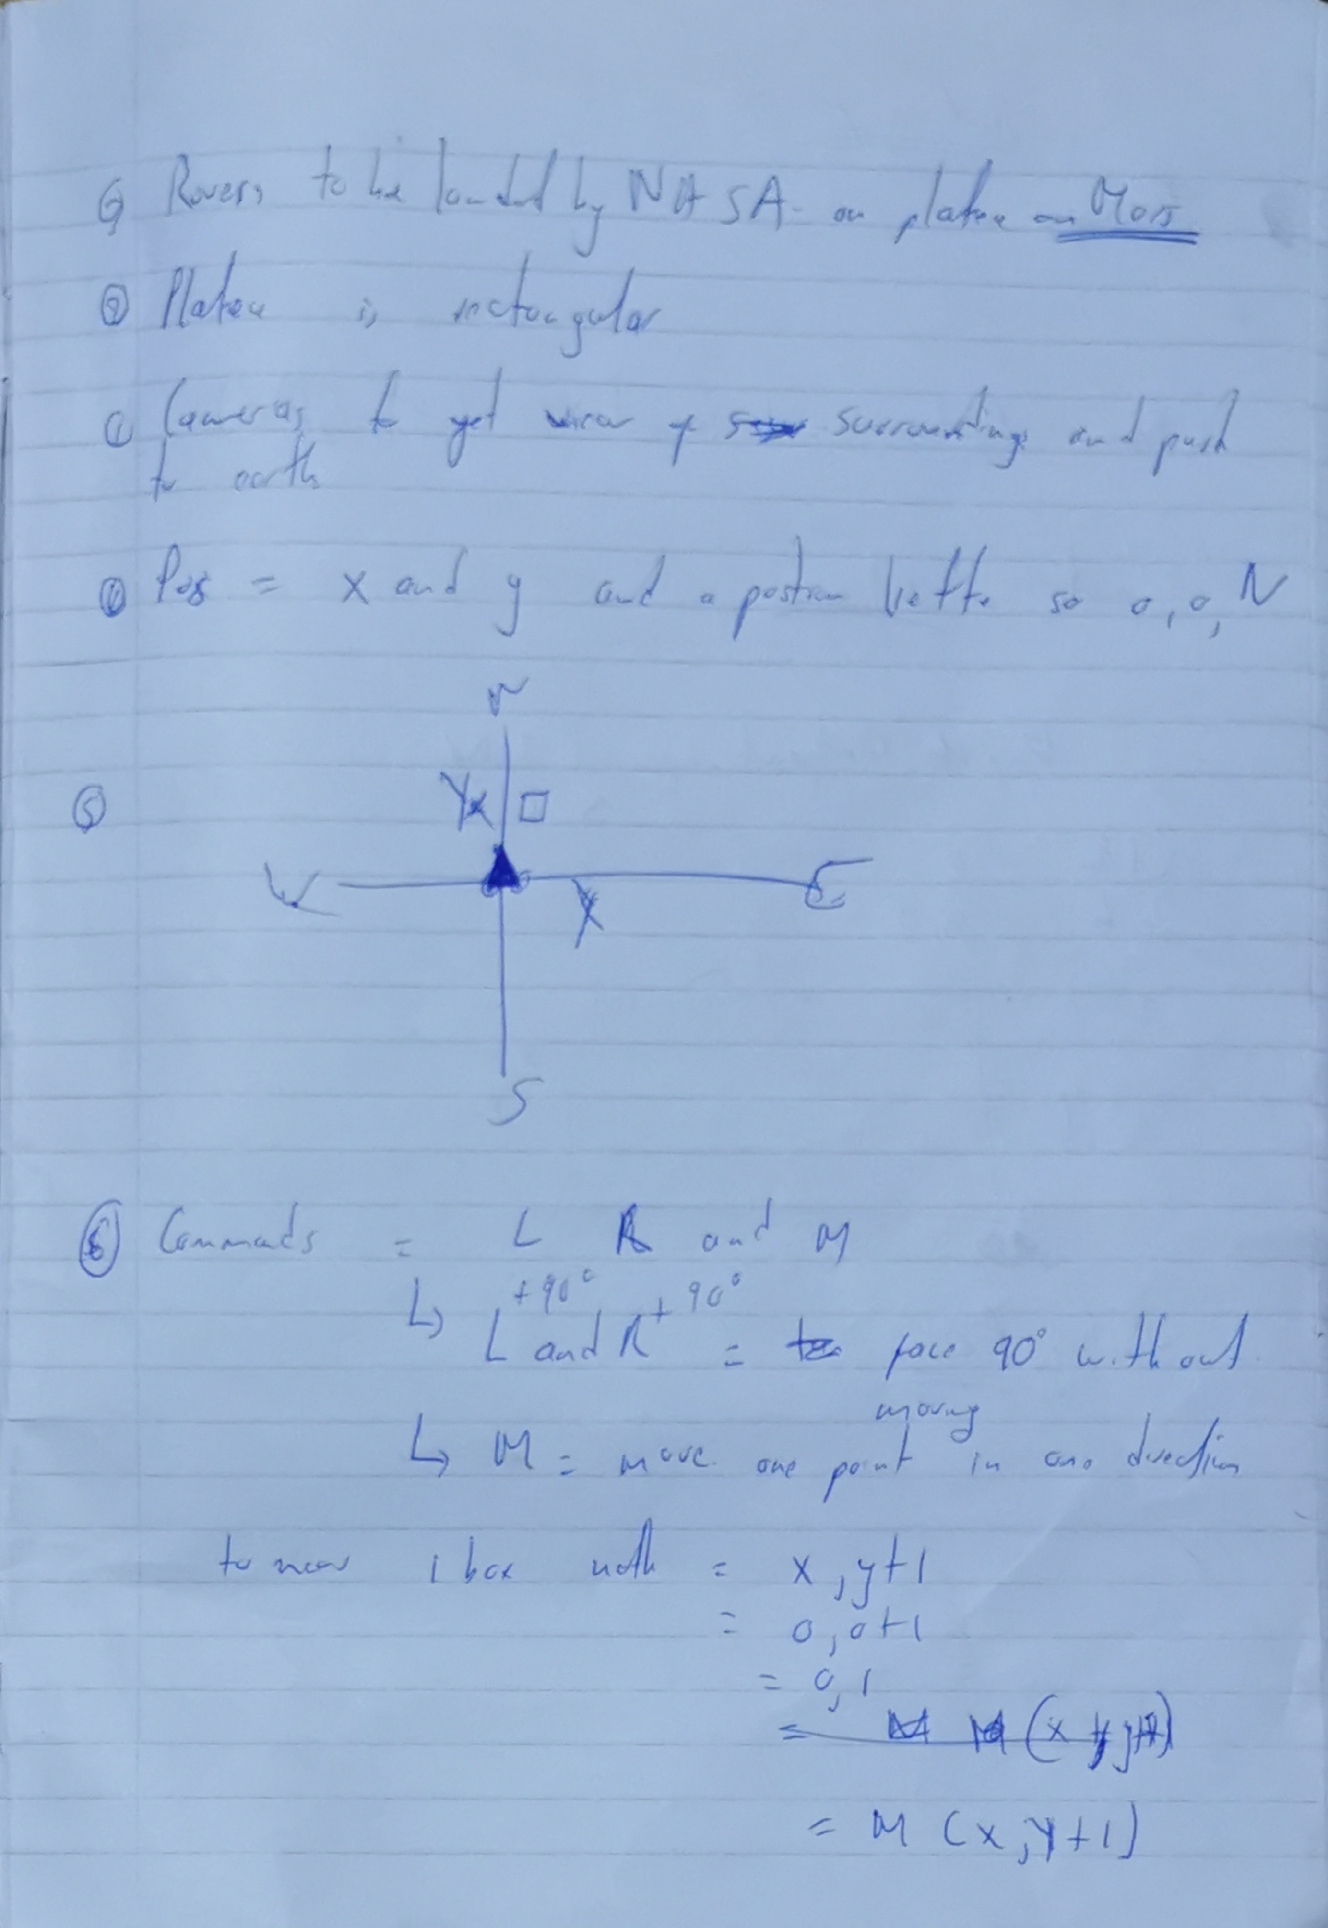 Rovers to be landed by NASA on plateu on Mars
② Plateu is rectangular
Cameras to get view of surroundings and push
to earth
④ Pos = x and y and a position lette so 0,0,N
N
⑤ Y
W E
X
S
⑥ Commands = L R and M
+90° +90°
↳ L and R = face 90° without
moving
↳ M = move one point in one direction
to move 1 box north = x, y+1
= 0, 0+1
= 0, 1
= M (x, y+1)